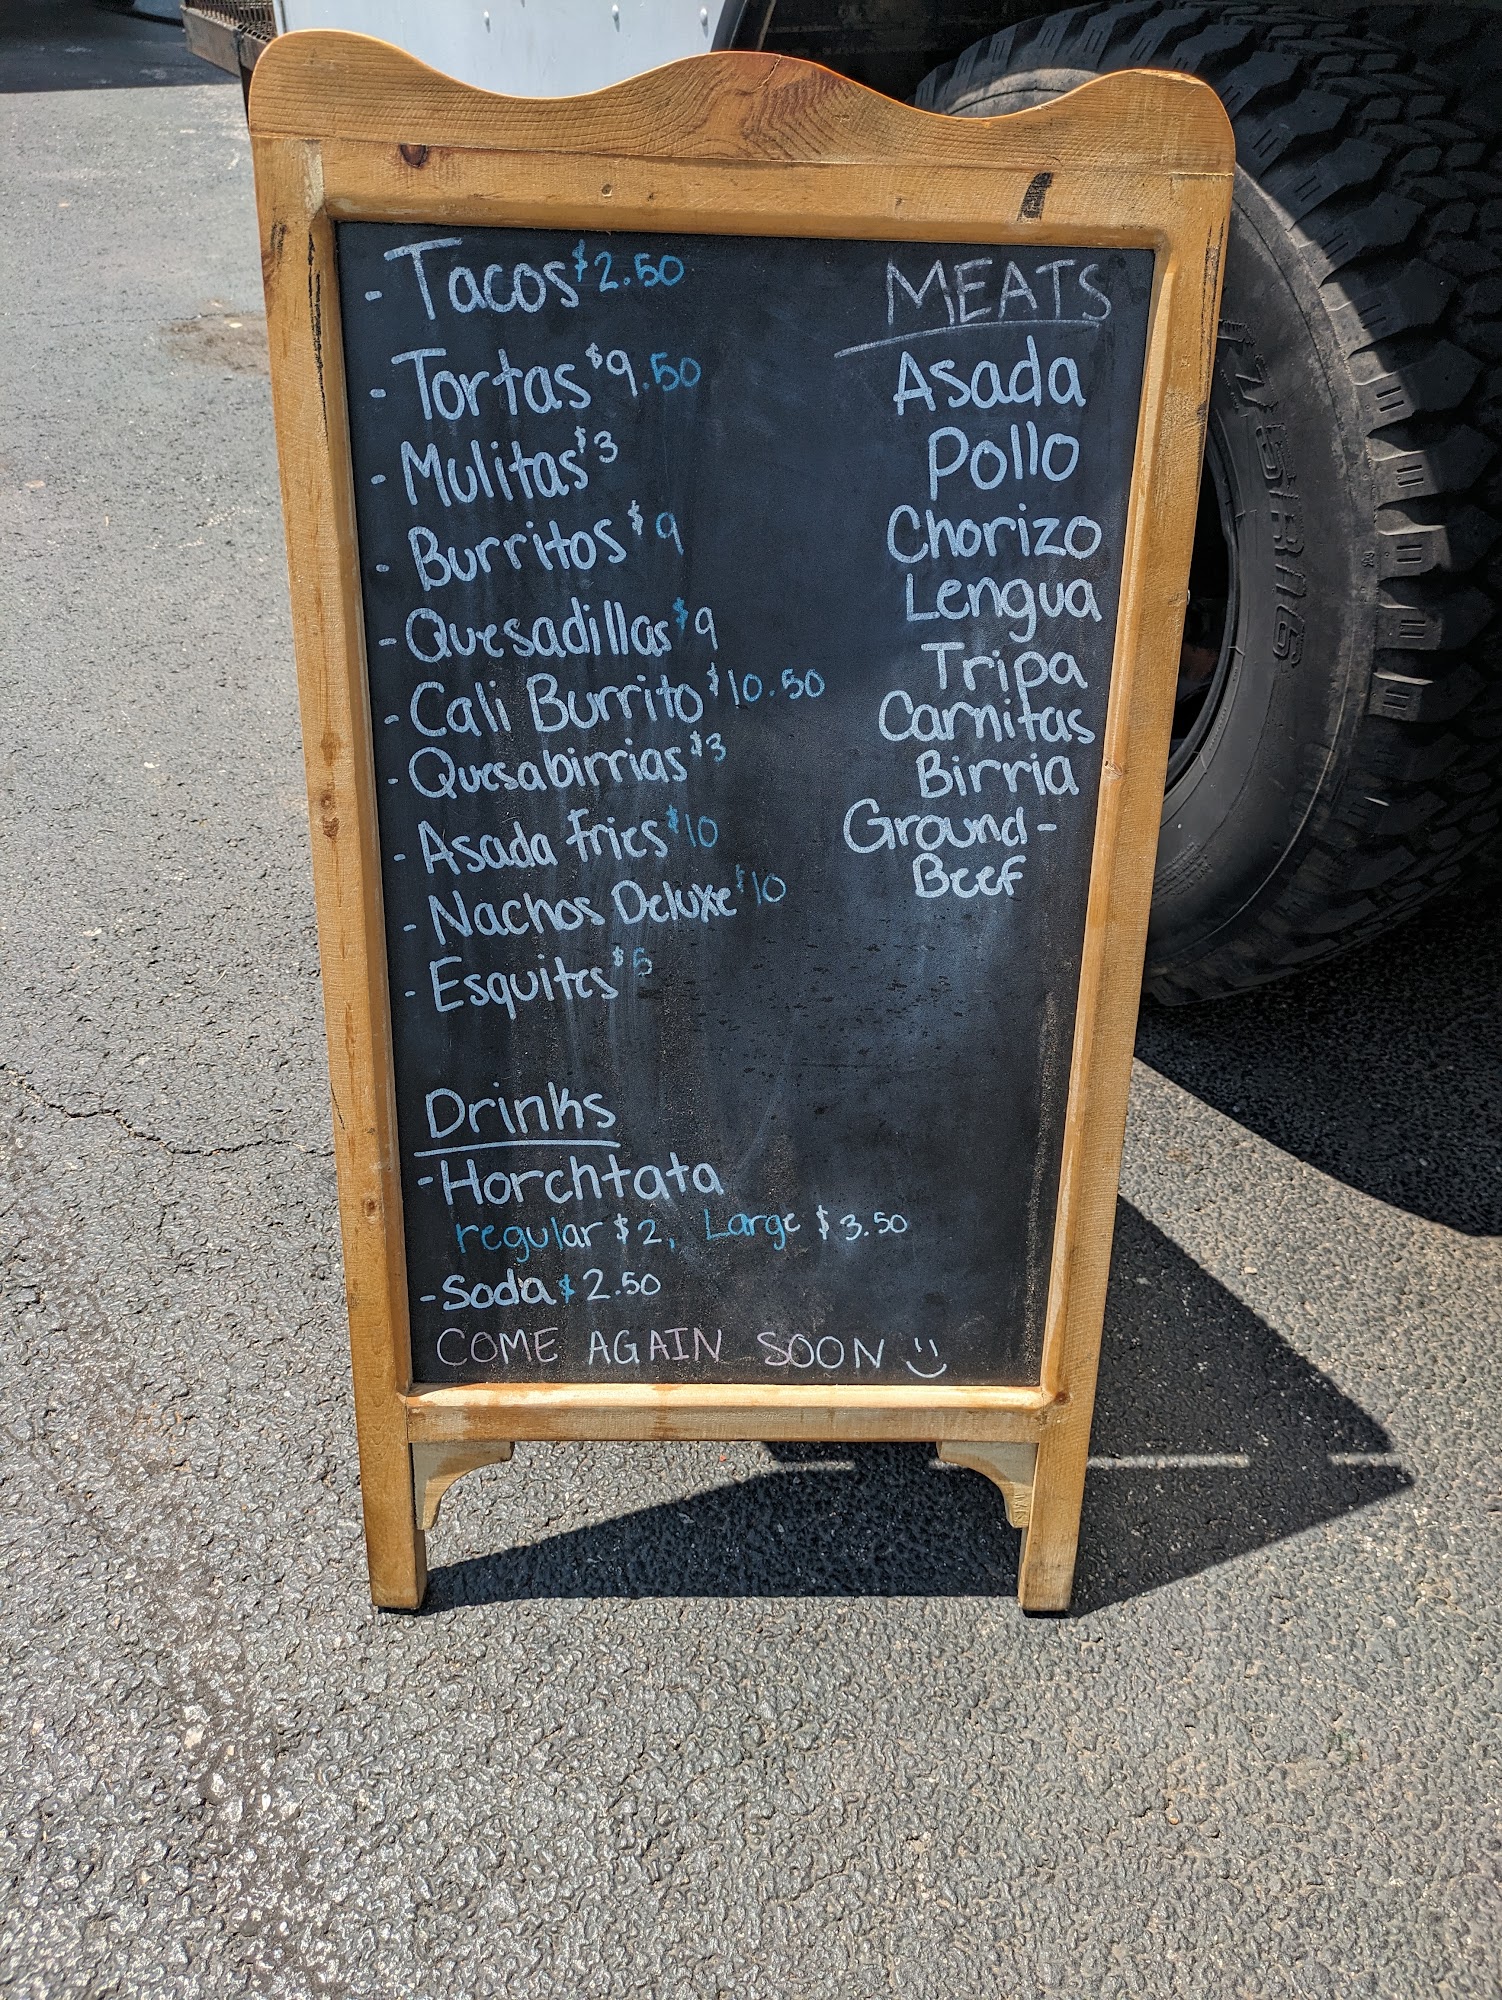 - Tacos $2.50
- Tortas $9.50
- Mulitas $3
- Burritos $9
- Quesadillas $9
- Cali Burrito $10.50
- Quesabirrias $3
- Asada Fries $10
- Nachos Deluxe $10
- Esquites
MEATS
Asada
Pollo
Chorizo
Lengua
Tripa
Carnitas
Birria
Ground-
Beef
Drinks
- Horchtata
regular $2, Large $3.50
- Soda $2.50
COME AGAIN SOON